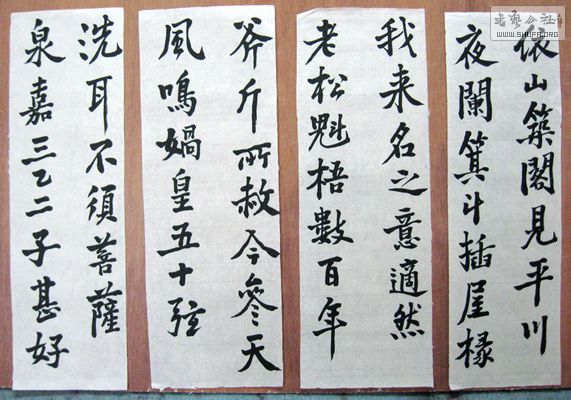 依山築閣見平川
夜闌箕斗插屋椽
我来名之意適然
老松魁梧數百年
斧斤所赦今參天
風鳴媧皇五十弦
洗耳不須菩薩
泉嘉三乙二子甚好
書藝公社
WWW.SHUFA.ORG